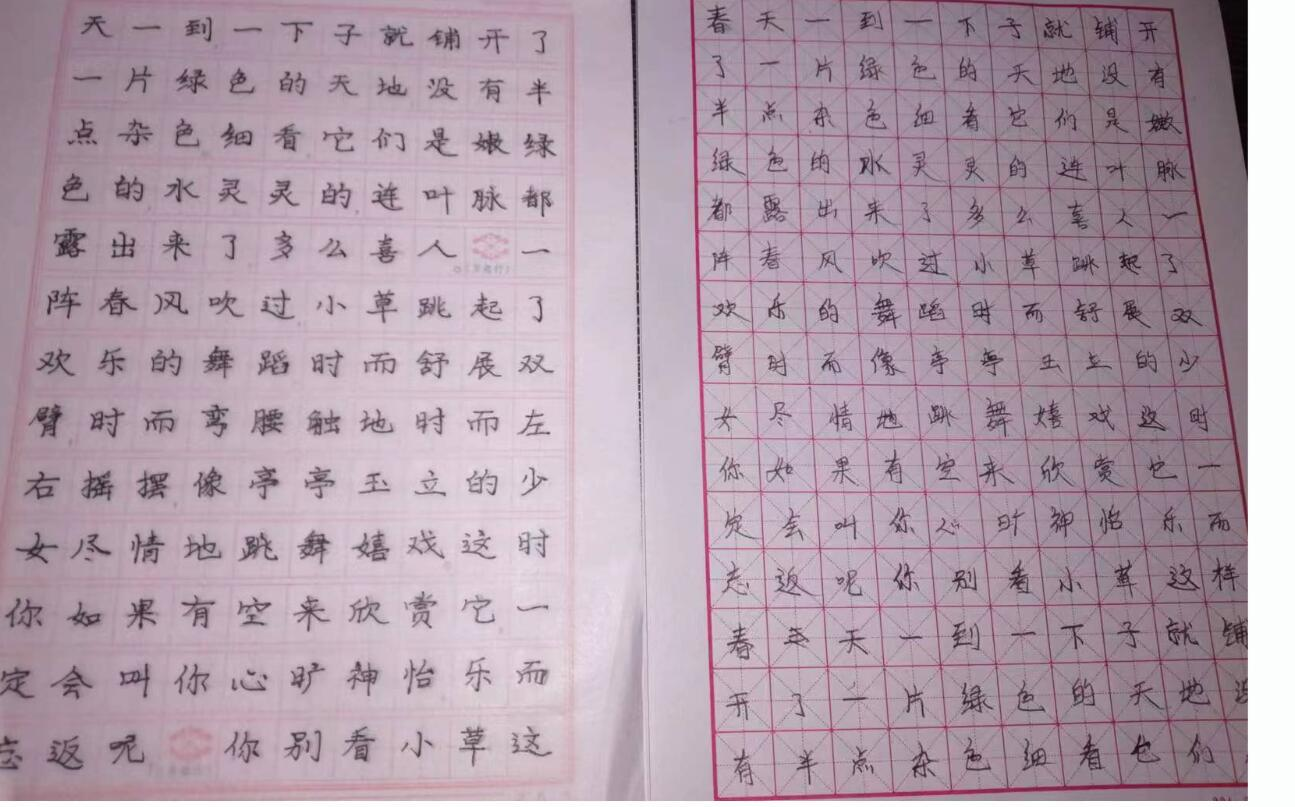 天一到一下子就铺开了
一片绿色的天地没有半
点杂色细看它们是嫩绿
色的水灵灵的连叶脉都
露出来了多么喜人一
阵春风吹过小草跳起了
欢乐的舞蹈时而舒展双
臂时而弯腰触地时而左
右摇摆像亭亭玉立的少
女尽情地跳舞嬉戏这时
你如果有空来欣赏它一
定会叫你心旷神怡乐而
忘返呢你别看小草这
春天一到一下子就铺开
了一片绿色的天地没有
半点杂色细看它们是嫩
绿色的水灵灵的连叶脉
都露出来了多么喜人一
阵春风吹过小草跳起了
欢乐的舞蹈时而舒展双
臂时而像亭亭玉立的少
女尽情地跳舞嬉戏这时
你如果有空来欣赏它一
定会叫你心旷神怡乐而
忘返呢你别看小草这样
春天一到一下子就铺
开了一片绿色的天地没
有半点杂色细看它们